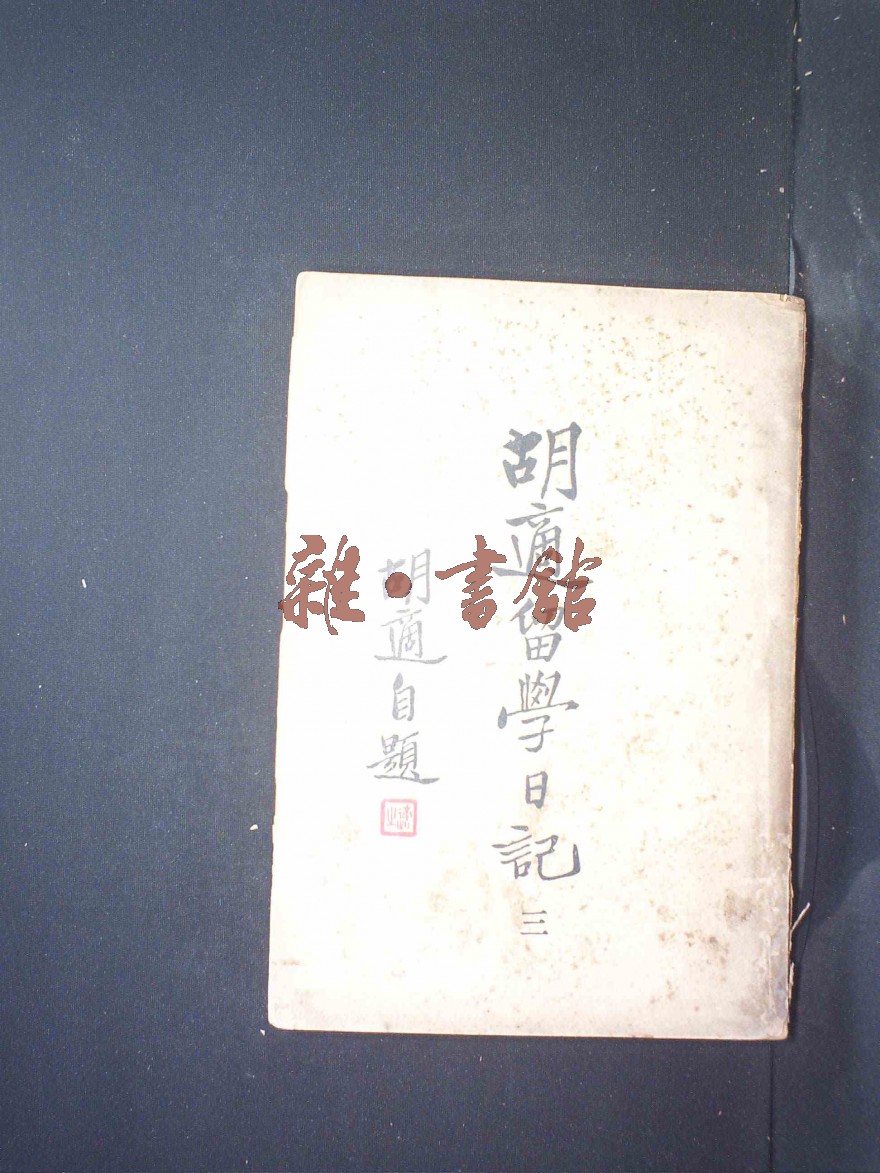 胡適留學日記 三
胡適自題
雜·書館